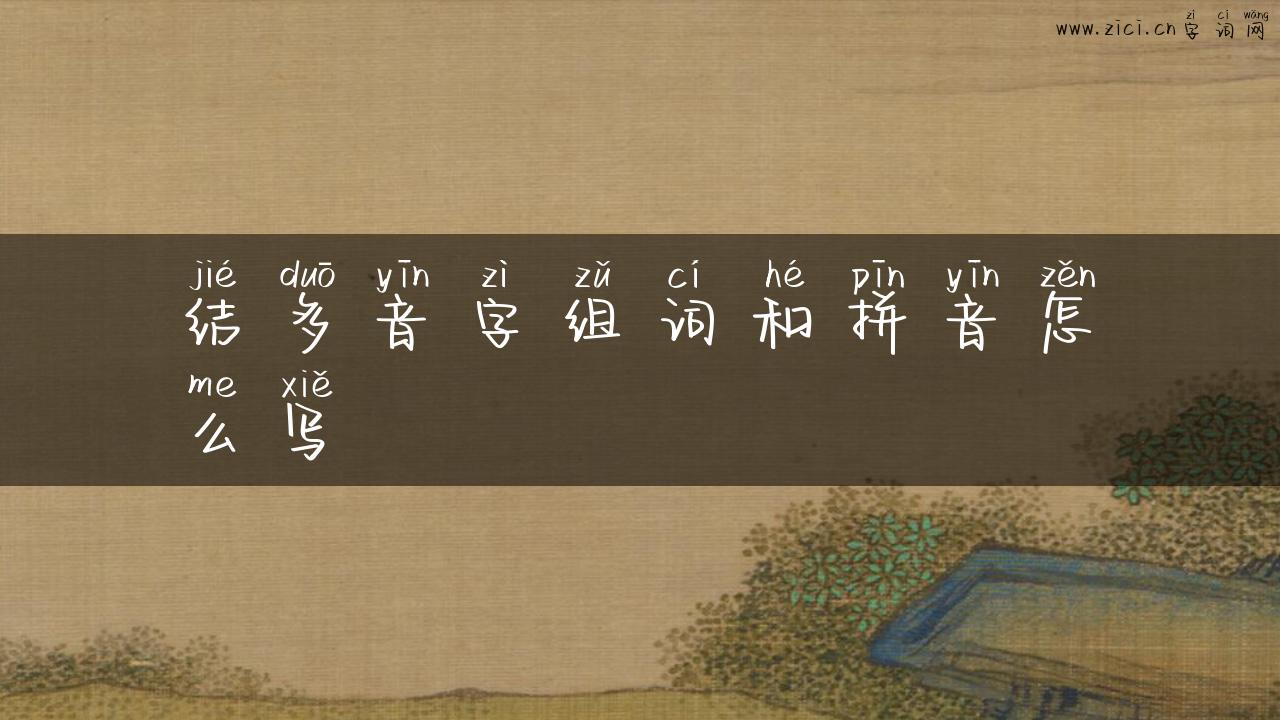 zì cí wǎng
www.zici.cn 字词网
jié duō yīn zì zǔ cí hé pīn yīn zěn
结多音字组词和拼音怎
me xiě
么写